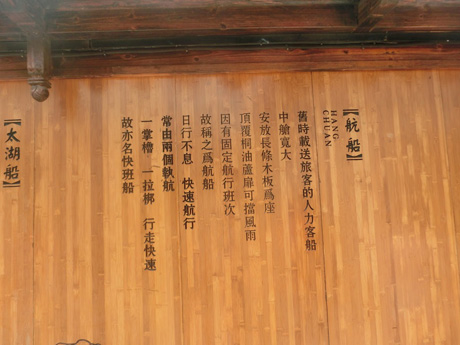 【航船】
HANG
CHUAN
舊時載送旅客的人力客船
中艙寬大
安放長條木板爲座
頂覆桐油蘆扉可擋風雨
因有固定航行班次
故稱之爲航船
日行不息 快速航行
常由兩個執航
一掌櫓 一拉梆 行走快速
故亦名快班船
【太湖船】